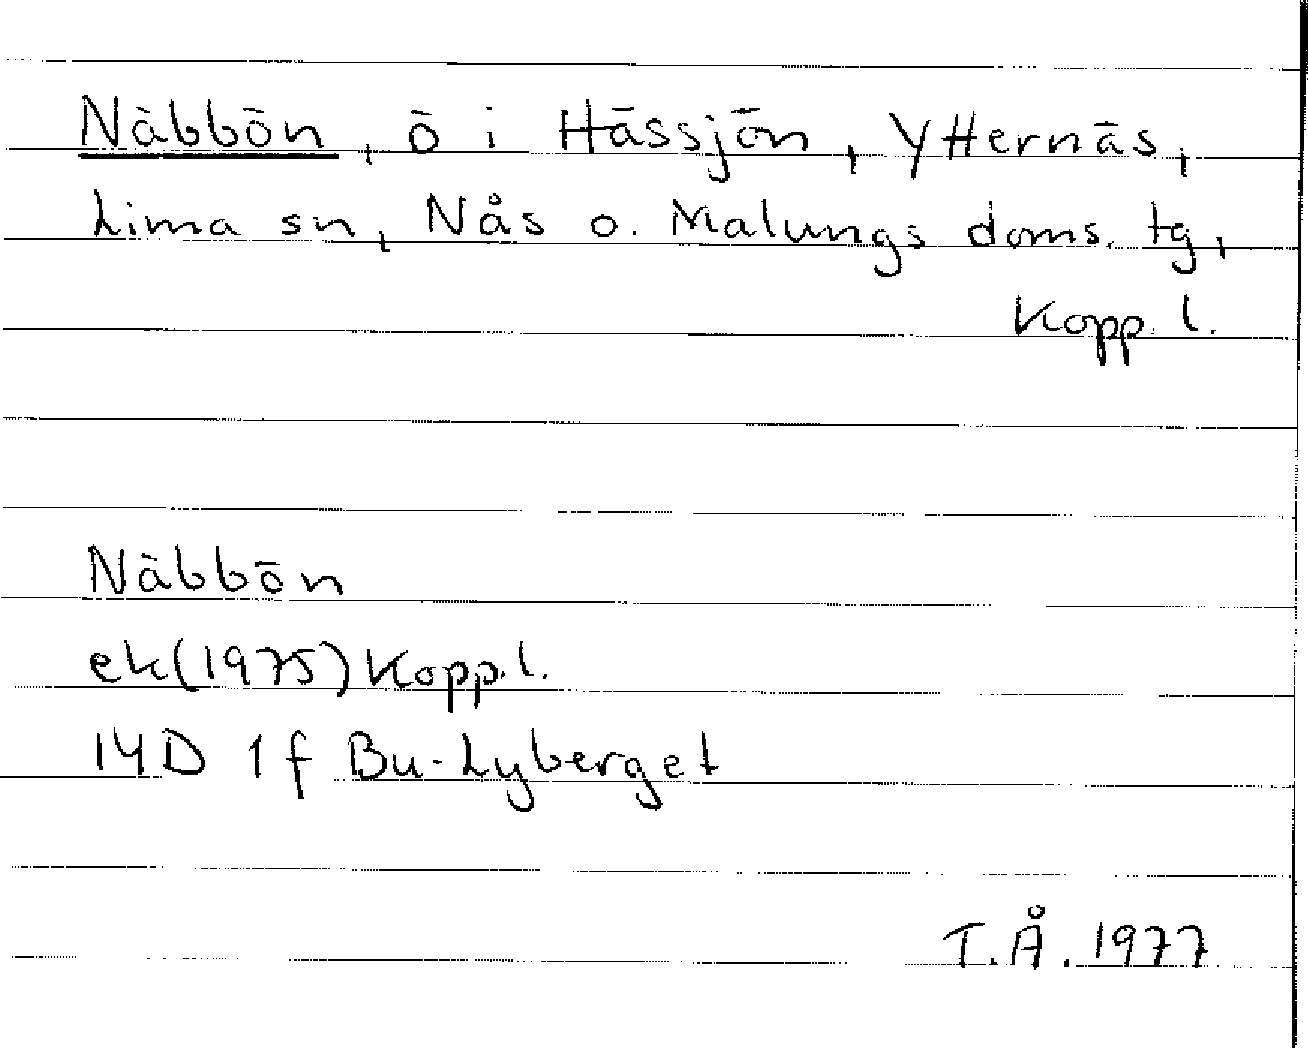 Näbbön, ö i Hässjön, Ytternäs,
Lima sn, Nås o. Malungs doms. tg,
Kopp. l.
Näbbön
ek(1975) Kopp. l.
14D 1f Bu-Lyberget
T.Å. 1977